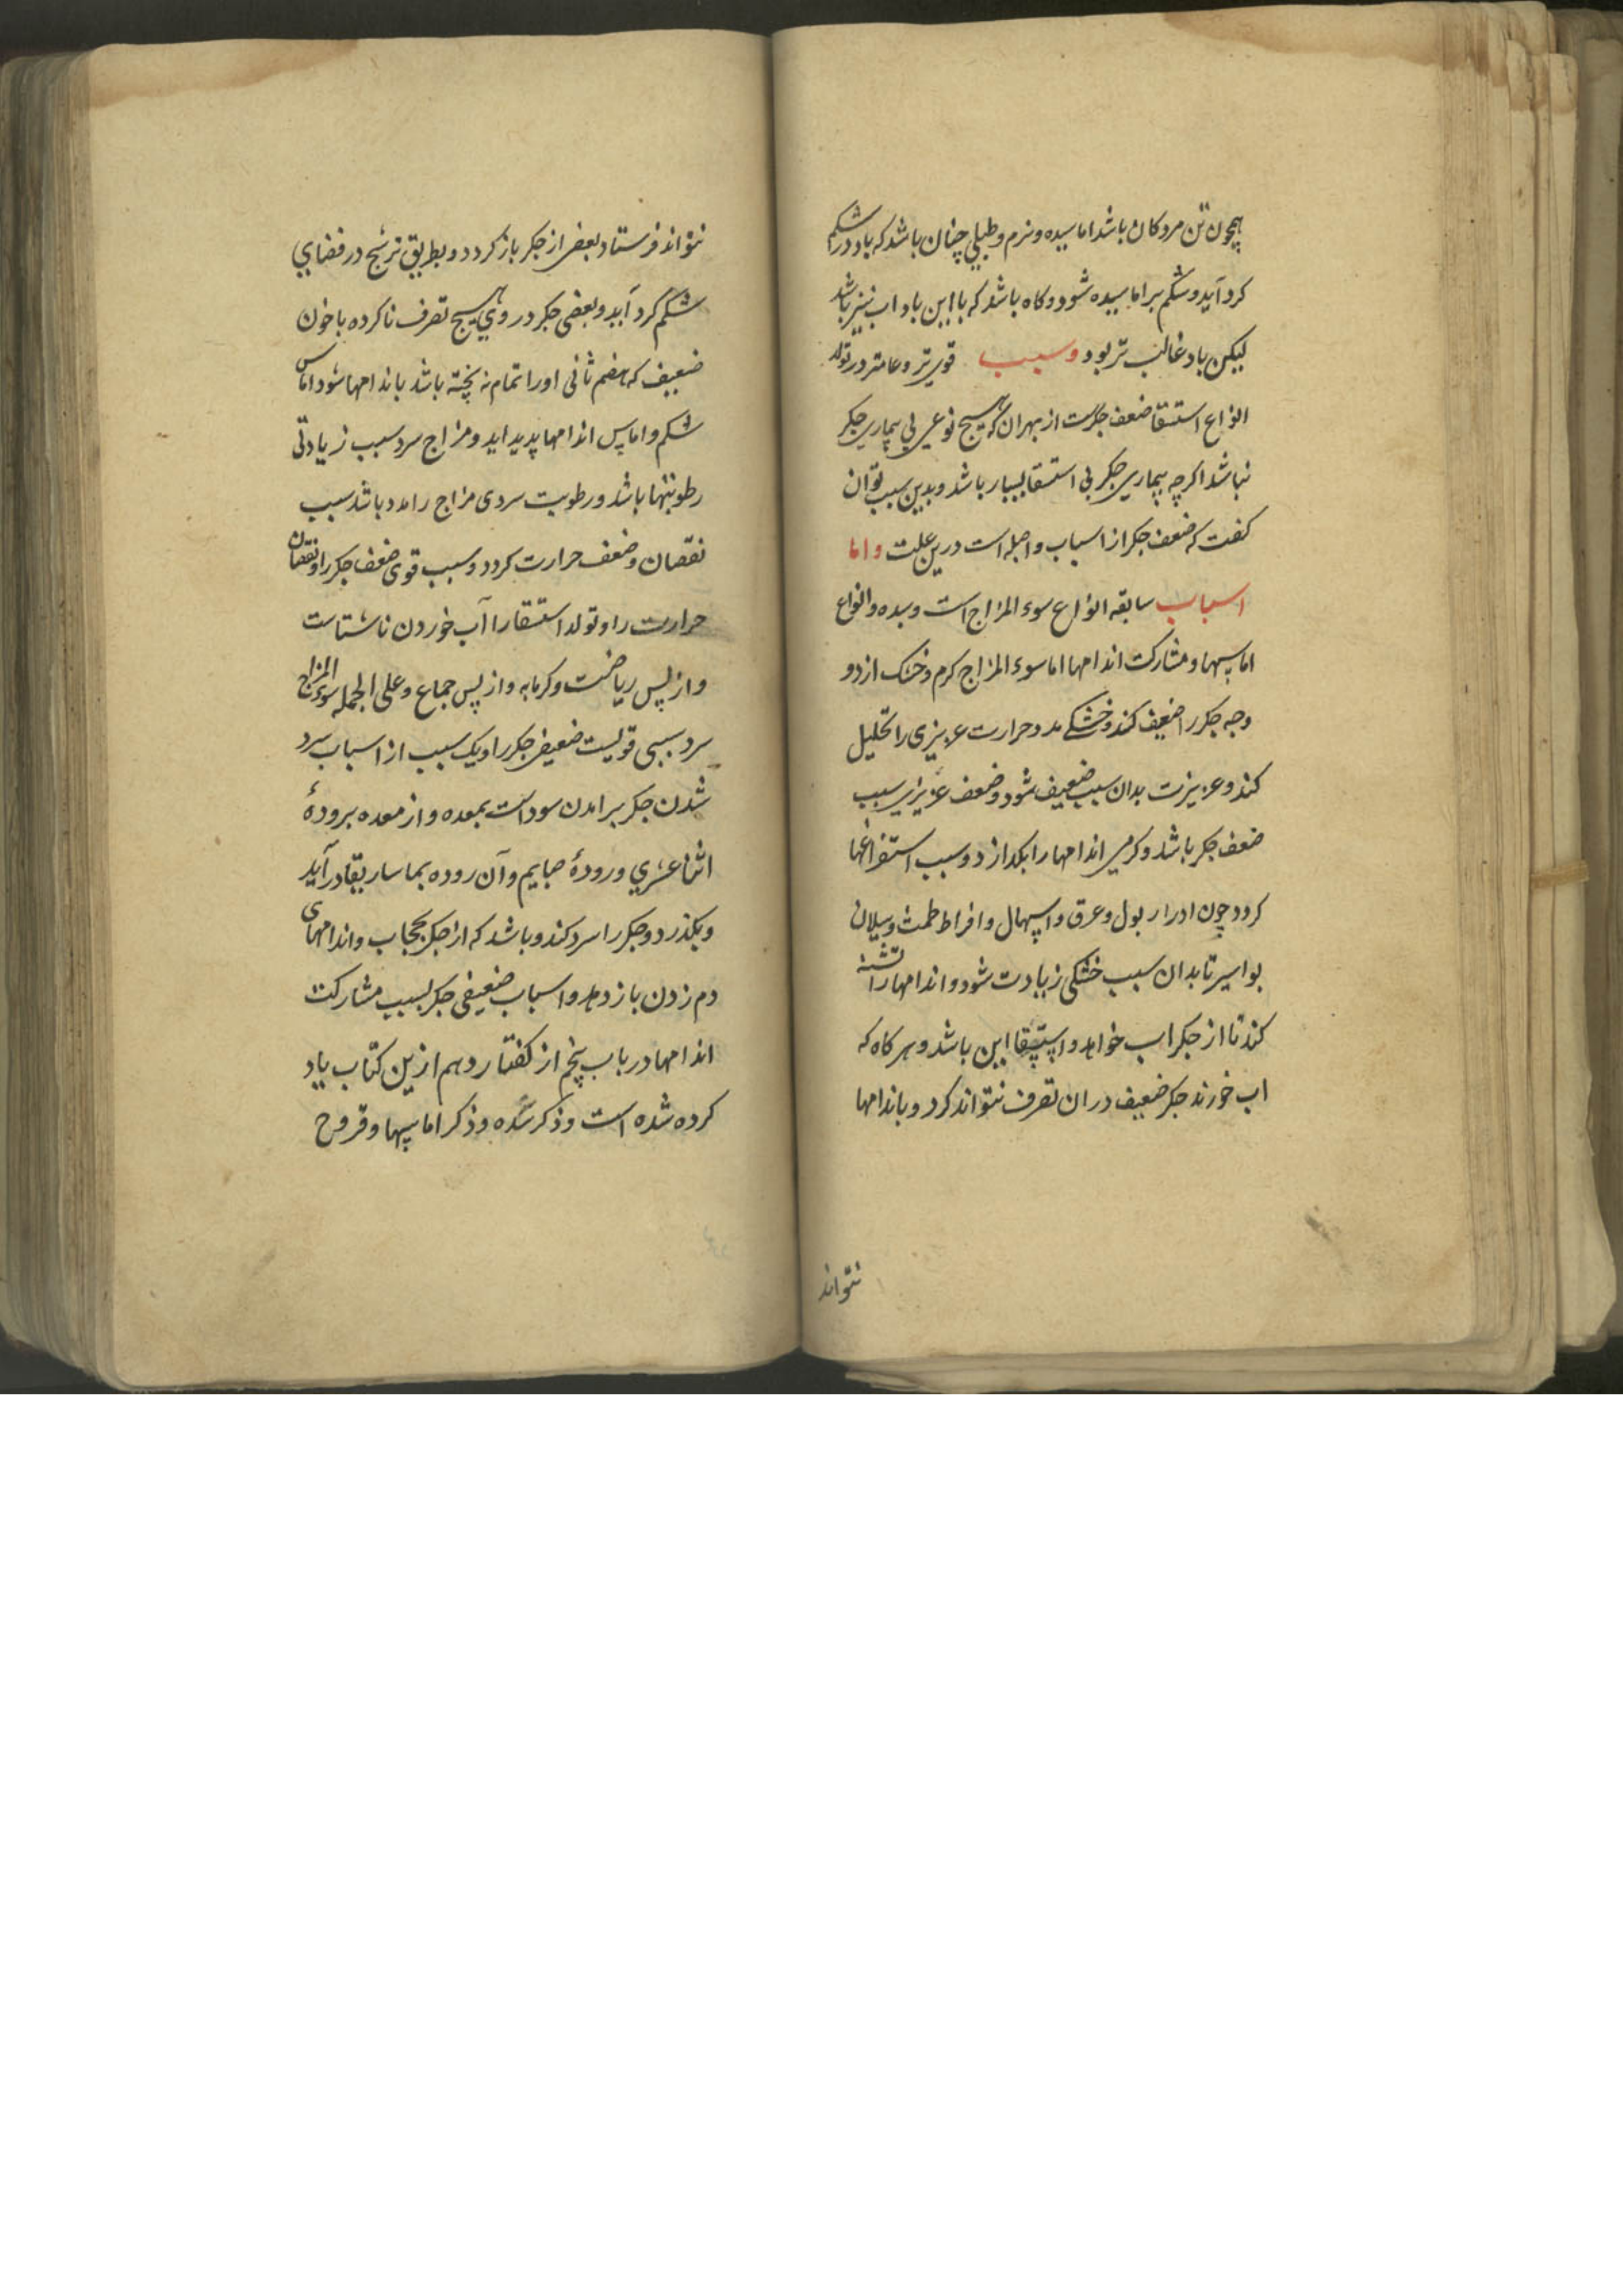 همچون تن مردکان باشد اماسیده و نرم و طبلی چنان باشد که باد در شکم
کرد آید و شکم بر اماسیده شود و کاه باشد که با این باد اب نیز باشد
لیکن باد غالب تر بود و سبب قوی تر و عامتر در تولد
انواع استسقا ضعف جکرست از بهر ان که هیچ نوعی بی بیماری جکر
نباشد اکرچه بیماری جکر بی استسقا بسیار باشد و بدین سبب توان
کفت که ضعف جکر از اسباب واصله است درین علت و اما
اسباب سابقه انواع سوء المزاج است و سده و انواع
اماسها و مشارکت اندامها اما سوء المزاج کرم و خشک از دو
وجه جکر را ضعیف کند و خشکی مدد حرارت عزیزی را تحلیل
کند و عزیزت بدان سبب ضعیف شود و ضعف عزیزی سبب
ضعف جکر باشد و کرمی اندامها را بکدازد و سبب استفراغها
کردد چون ادرار بول و عرق و اسهال و افراط طمث و سیلان
بواسیر تا بدان سبب خشکی زیادت شود و اندامها را تشنه
کند تا از جکر اب خواهد و استسقا این باشد و هر کاه که
اب خورند جکر ضعیف در ان تصرف نتواند کرد و باندامها
نتواند
نتواند فرستاد بعضی از جکر باز کردد و بطریق ترشح در فضای
شکم کرد آید و بعضی جکر در وی هیچ تصرف ناکرده با خون
ضعیف که هضم ثانی او را تمام نه پخته باشد باندامها شود اماس
شکم و اماس اندامها پدید اید و مزاج سرد سبب زیادتی
رطوبتها باشد و رطوبت سردی مزاج را مدد باشد سبب
نقصان و ضعف حرارت کردد و سبب قوی ضعف جکر را و نقصان
حرارت را و تولد استسقا را آب خوردن ناشتاست
و از پس ریاضت و کرمابه و از پس جماع و علی الجمله سوء المزاج
سرد سببی قویست ضعیفی جکر را و یک سبب از اسباب سرد
شدن جکر برامدن سوداست بمعده و از معده برودهٔ
اثنا عشری و رودهٔ صایم و آن روده بماساریقا در آید
و بکذرد و جکر را سرد کند و باشد که از جکر بحجاب و اندامهای
دم زدن باز دهد و اسباب ضعیفی جکر بسبب مشارکت
اندامها در باب پنجم از کفتار دهم ازین کتاب یاد
کرده شده است و ذکر سده و ذکر اماسها و قروح